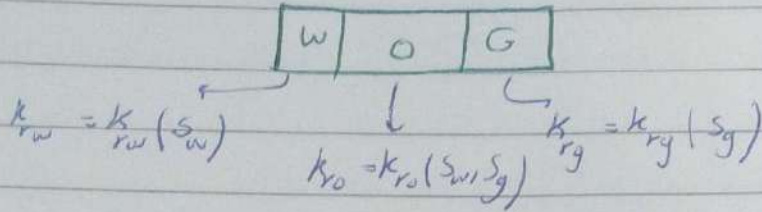 W O G
k_rw = k_rw (S_w)
k_ro = k_ro (S_w, S_g)
k_rg = k_rg (S_g)